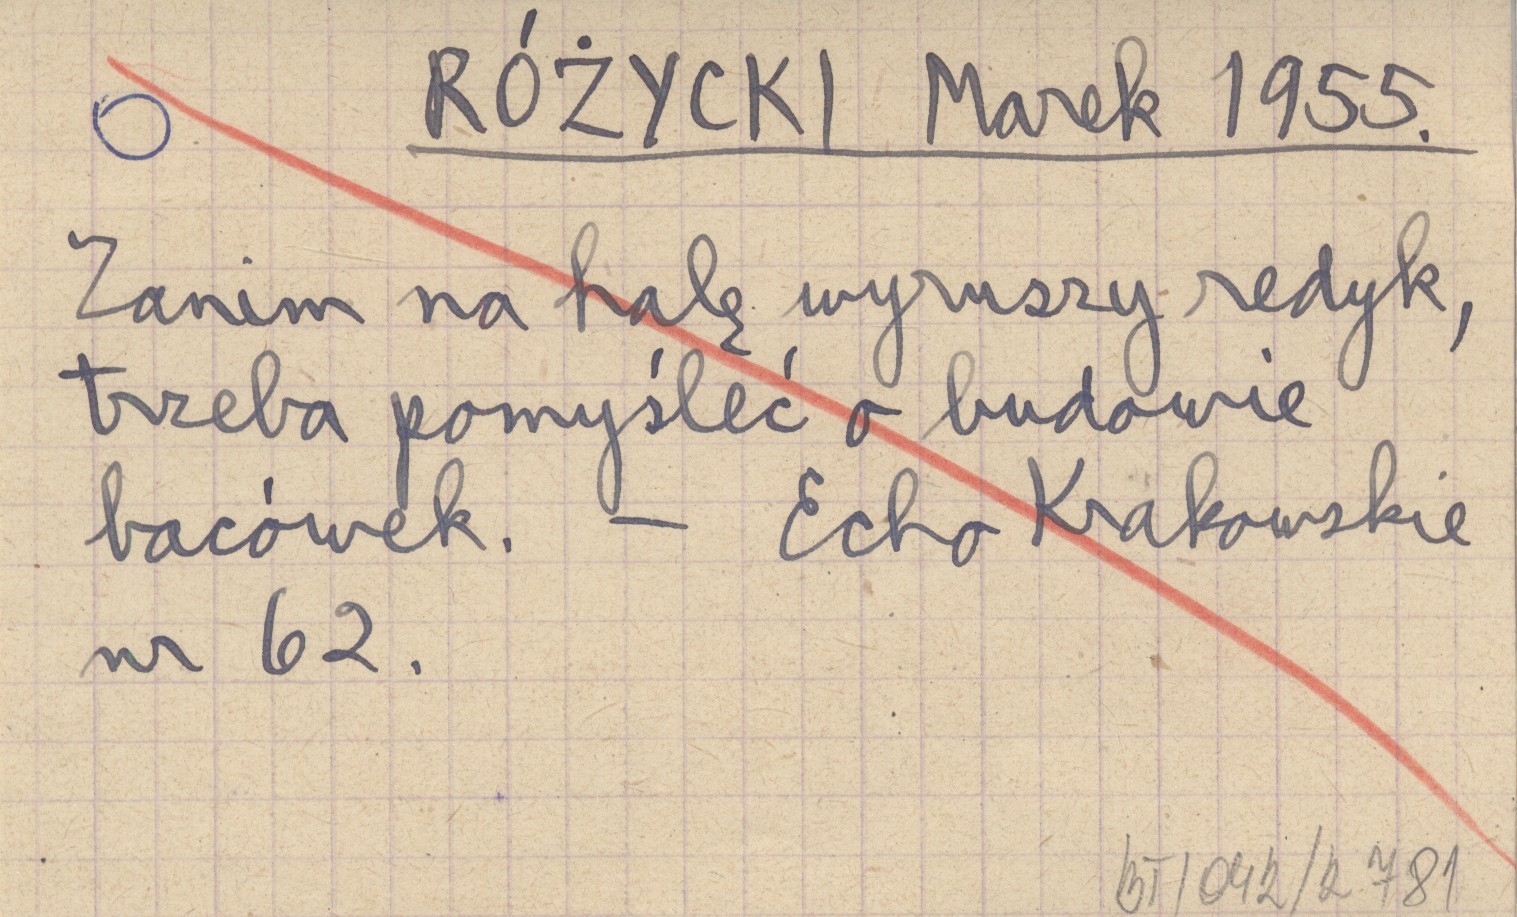 RÓŻYCKI Marek 1955.
Zanim na halę wyruszy redyk,
trzeba pomyśleć o budowie
bacówek. — Echo Krakowskie
nr 62.
BT/042/2 781